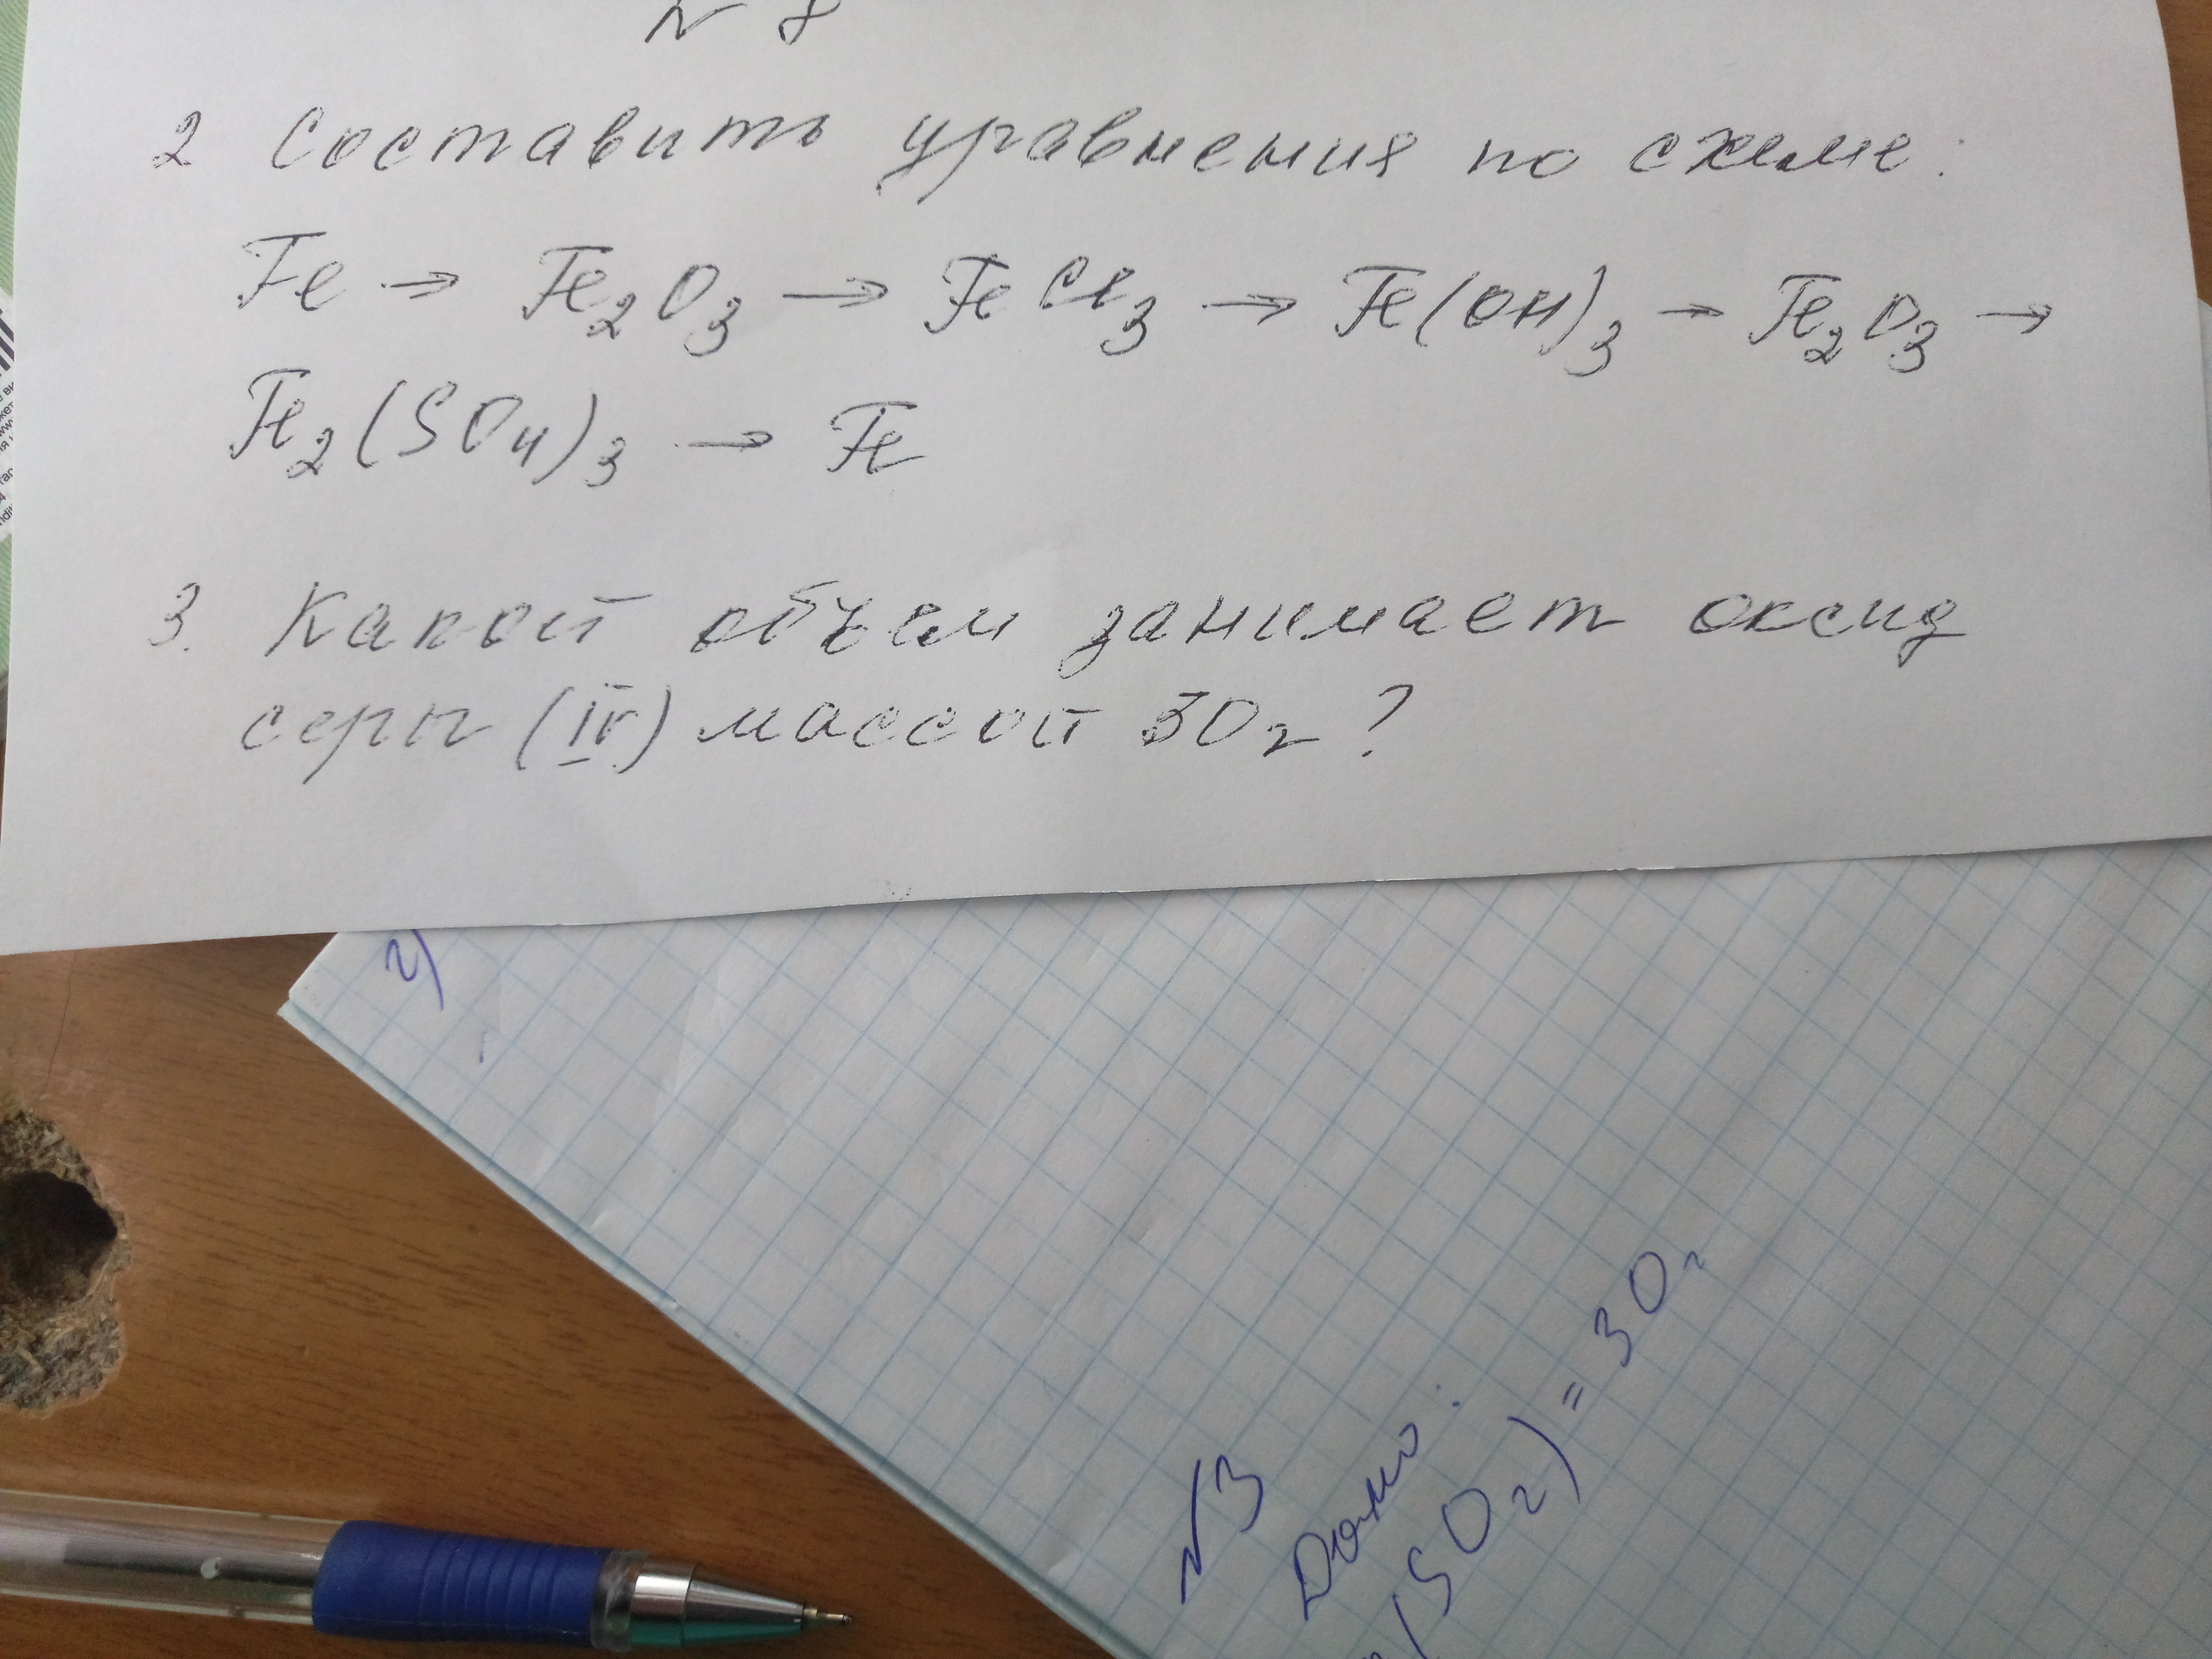 N 8
2 Составить уравнения по схеме:
Fe → Fe₂O₃ → FeCl₃ → Fe(OH)₃ → Fe₂O₃ →
Fe₂(SO₄)₃ → Fe
3. Какой объем занимает оксид
серы (IV) массой 30г?
2)
N3
Дано:
m(SO₂) = 30г